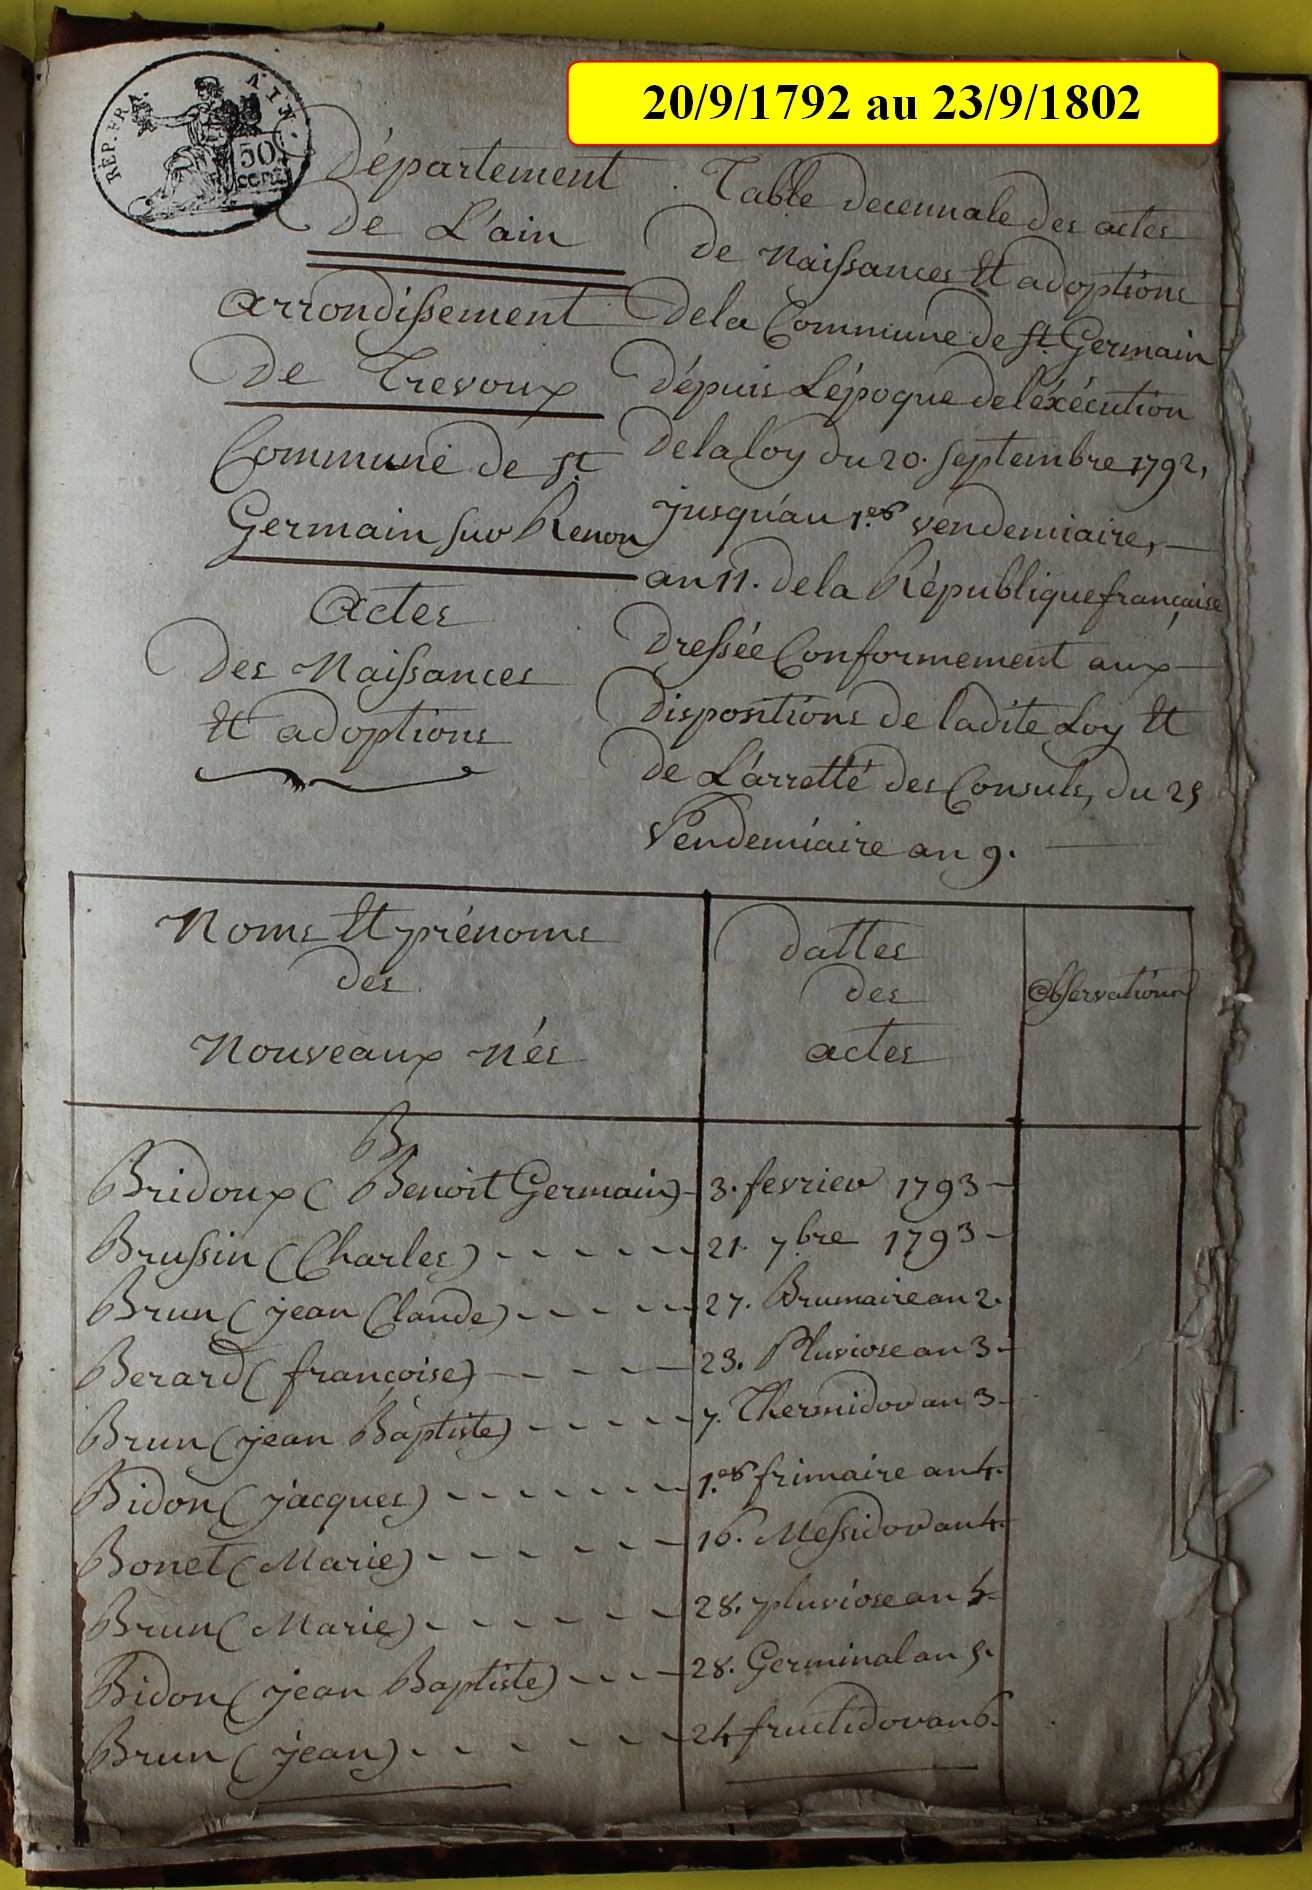 20/9/1792 au 23/9/1802
RÉP. FRA.
50
CENT
Département
de L'ain
arrondissement
de Trevoux
Commune de St
Germain sur Renon
Actes
des Naissances
Et adoptions
Table decennale des actes
de Naissances Et adoptions
dela Commune de St Germain
dépuis L'époque del'éxécution
delaloy du 20. septembre 1792,
jusqu'au 1.er vendemiaire,
an 11. dela République française
dressée Conformement aux
dispositions de ladite Loy Et
de L'arretté des Consuls, du 25
Vendemiaire an 9.
Noms Et prénoms
des
Nouveaux Nés
dattes
des
actes
observations
B
Bridoux (Benoit Germain) 3. fevrier 1793
Brussin (Charles) 21. 7bre 1793
Brun (jean Claude) 27. Brumaire an 2.
Berard (françoise) 23. Pluviose an 3
Brun (jean Baptiste) 7. Thermidor an 3
Bidon (jacques) 1.er frimaire an 4.
Bonet (Marie) 16. Messidor an 4.
Brun (Marie) 28. pluviose an 5
Bidon (jean Baptiste) 28. Germinal an 5.
Brun (jean) 24 fructidor an 6.